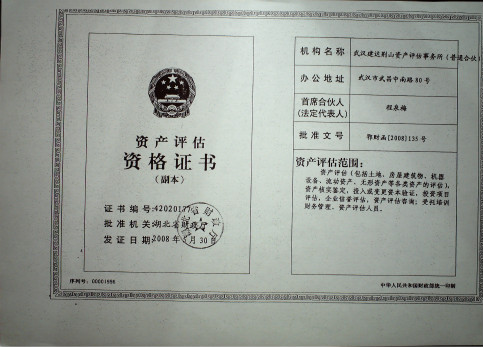 资产评估
资格证书
（副本）
证书编号:42020177
批准机关:湖北省财政厅
发证日期:2008年5月30日
序列号：00001996
机构名称
武汉建达荆山资产评估事务所（普通合伙）
办公地址
武汉市武昌中南路80号
首席合伙人
（法定代表人）
程泉梅
批准文号
鄂财函[2008]135号
资产评估范围：
资产评估（包括土地、房屋建筑物、机器
设备、流动资产、无形资产等各类资产的评估），
资产核实鉴定，投入或变更资本验证，投资项目
评估，企业信誉评估，资产评估咨询；受托培训
财务管理、资产评估人员。
中华人民共和国财政部统一印制